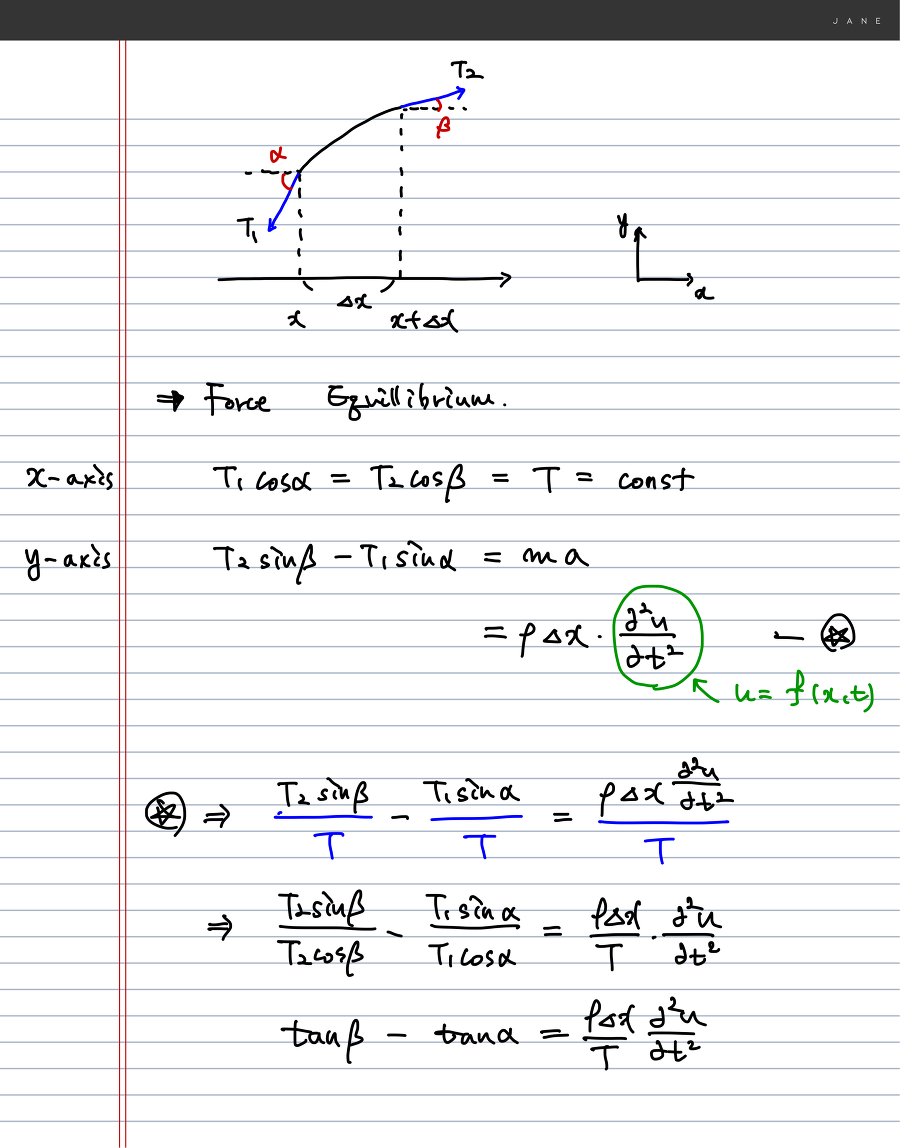 JANE
T₂
β
α
T₁
y
x
Δx
x x+Δx
⇒ Force Equillibrium.
x-axis T₁ cosα = T₂ cosβ = T = const
y-axis T₂ sinβ − T₁ sinα = ma
= ρΔx · ∂²u/∂t² — ☆
u = f(x,t)
☆ ⇒ T₂ sinβ/T − T₁ sinα/T = ρΔx ∂²u/∂t²/T
⇒ T₂ sinβ/T₂ cosβ − T₁ sinα/T₁ cosα = ρΔx/T · ∂²u/∂t²
tanβ − tanα = ρΔx/T ∂²u/∂t²